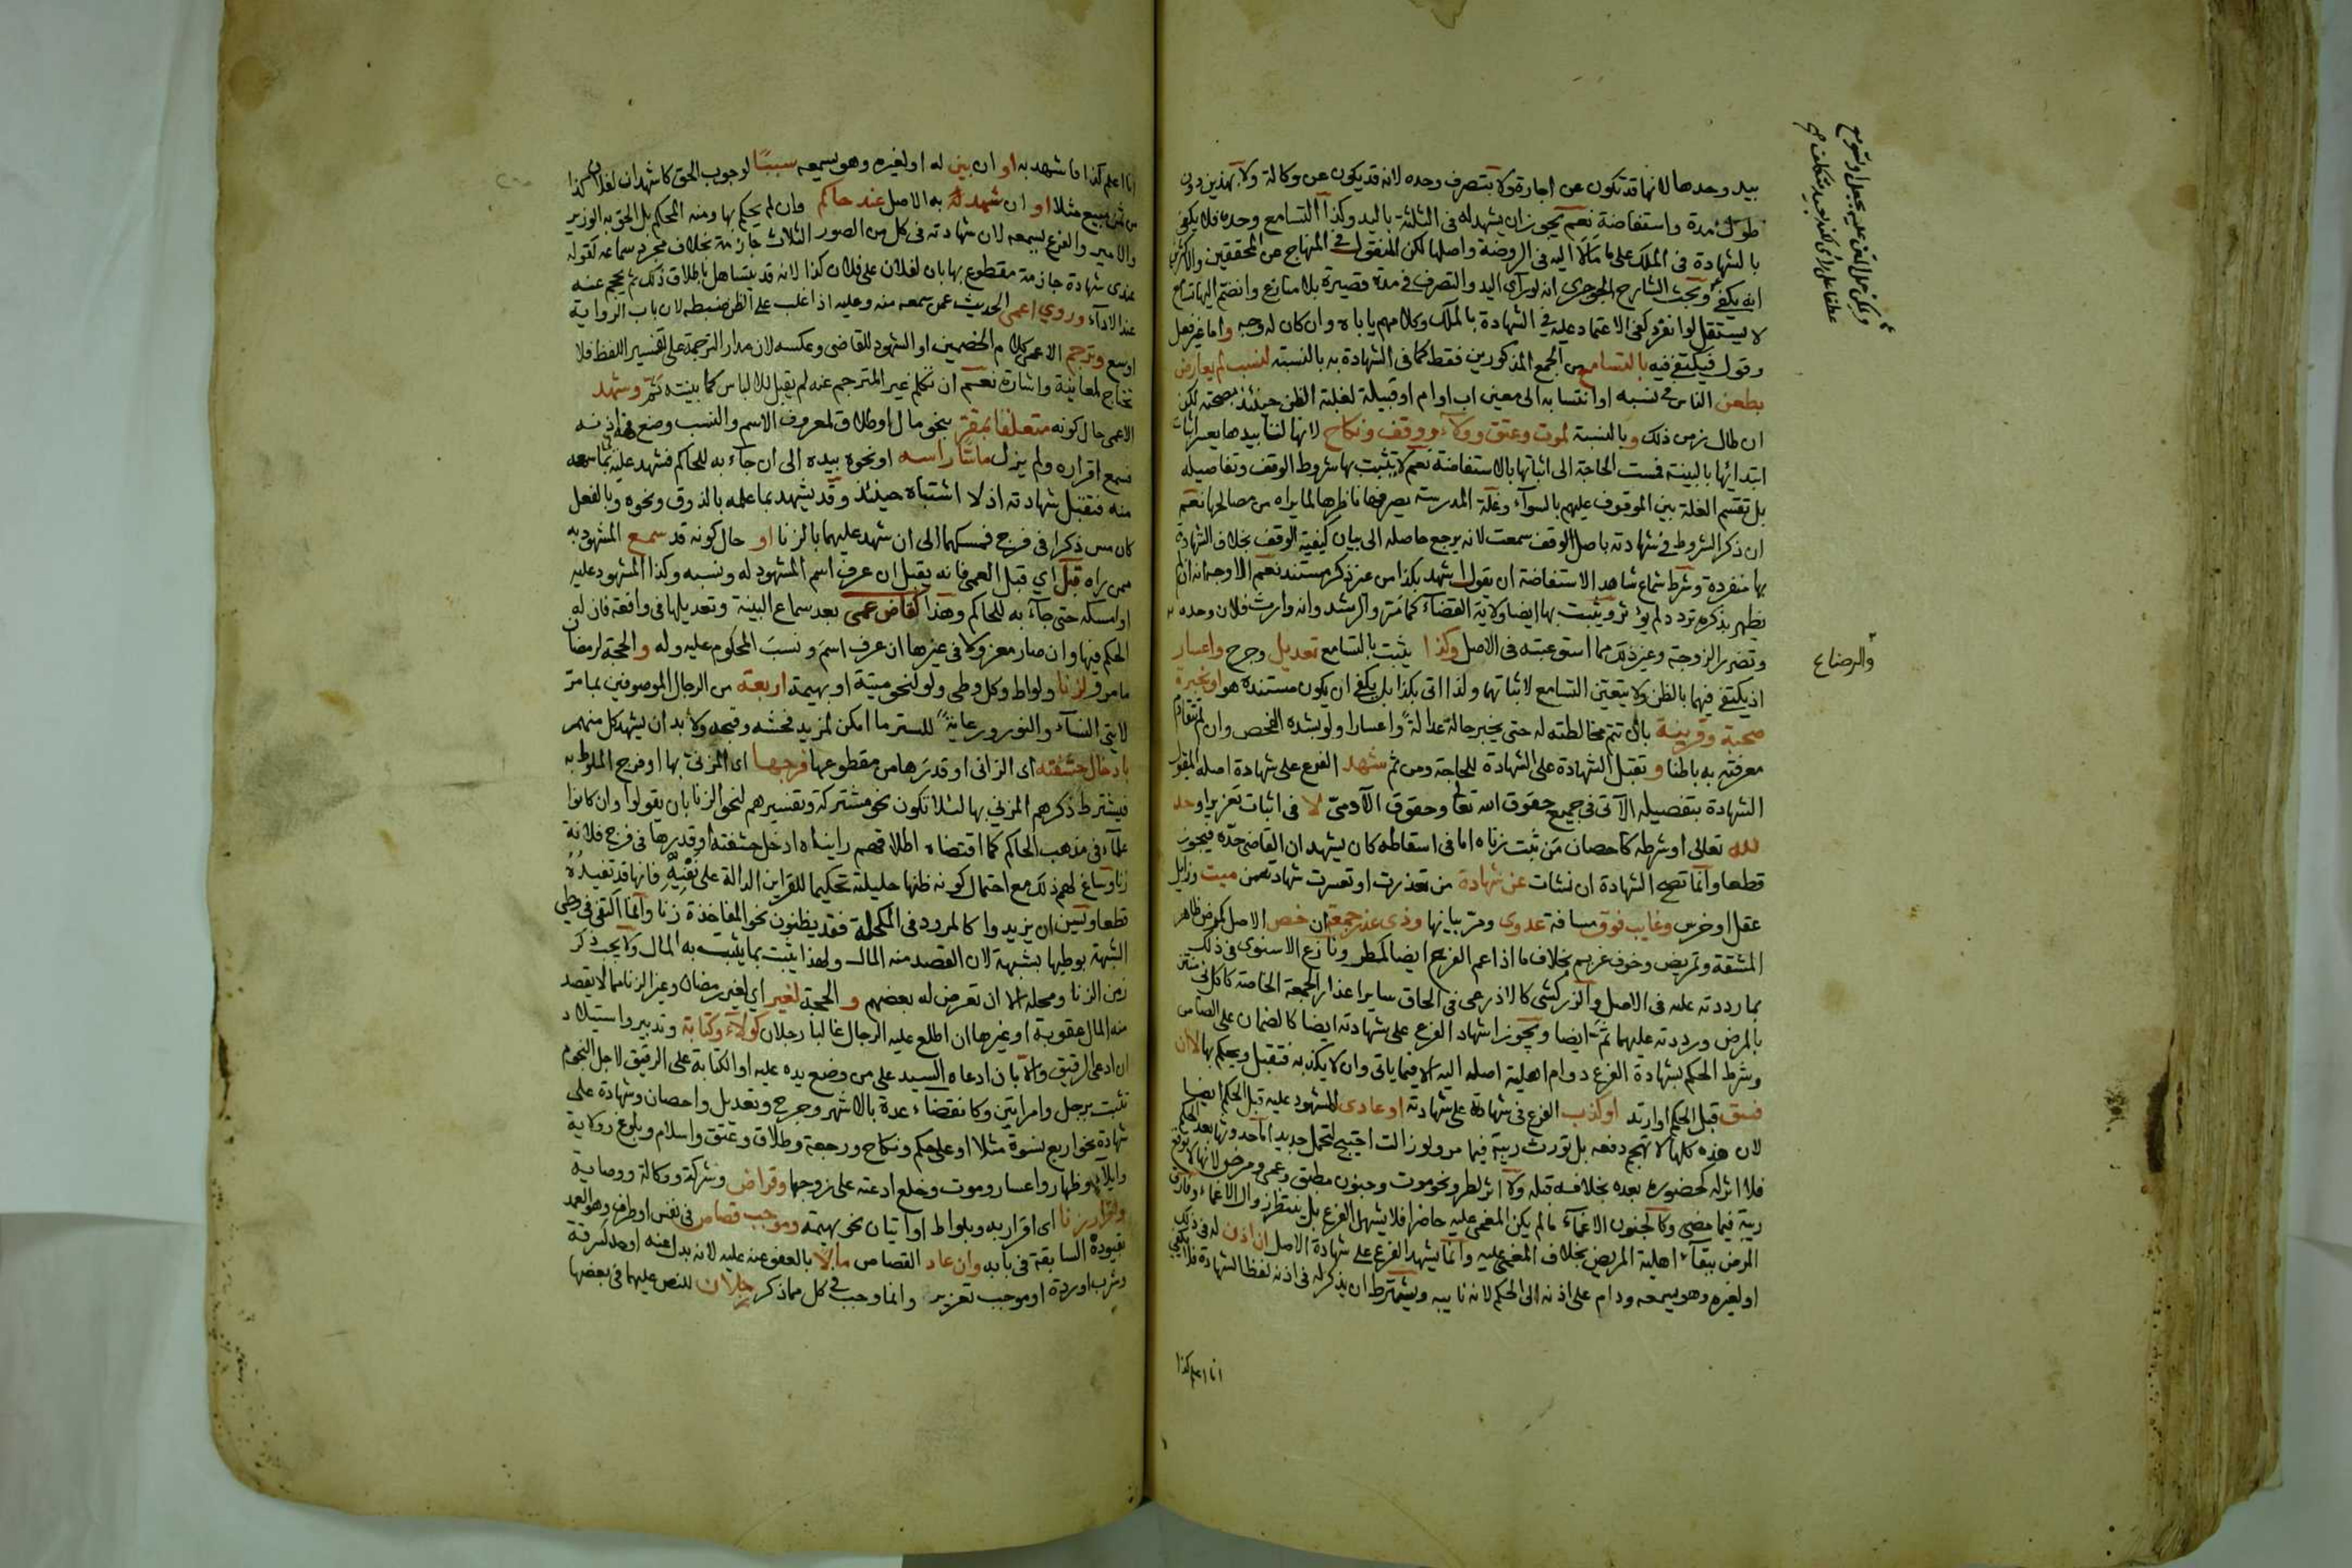 بيد وحدها لانها قد تكون عن اجارة ولا بتصرف وحده لانه قد يكون عن وكالة ولا بهذين دون
طول مدة واستفاضة نعم يجوز ان يشهد له في الثلثة باليد وكذا التسامع وحده فلا يكفي
بالشهادة في الملك على ما مالا اليه في الروضة واصلها لكن المنقول في المنهاج عن المحققين والاكثرين
انه يكفي وبحث الشارح الجوجري انه لو راى اليد والتصرف في مدة قصيرة بلا منازع وانضم اليها تسامع
لا يستقل لو انفرد كفى الاعتماد عليه في الشهادة بالملك وكلامهم ياباه وان كان له وجه واما غير فعل
وقول فيكتفى فيه بالتسامع من الجمع المذكورين فقط كما في الشهادة به بالنسبة لنسب لم يعارض
بطعن الناس في نسبه او انتسابه الى معين اب او ام او قبيلة لغلبة الظن حينئذ بصحته لكن
ان طال زمن ذلك وبالنسبة لموت وعتق وولاء ووقف ونكاح لانها لتابيدها يعسر اثبات
ابتدائها بالبينة فمست الحاجة الى اثباتها بالاستفاضة نعم لا يثبت بها شروط الوقف وتفاصيله
بل تقسم الغلة بين الموقوف عليهم بالسواء وغلة المدرسة يصرفها ناظرها لما يراه من مصالحها نعم
ان ذكر الشروط في شهادته باصل الوقف سمعت لانه يرجع حاصله الى بيان كيفية الوقف بخلاف الشهادة
بها منفردة وشرط سماع شاهد الاستفاضة ان يقول اشهد بكذا من غير ذكر مستند نعم الاوجه انه ان لم
يظهر بذكره تردد لم يؤثر ويثبت بها ايضا ولاية القضاء كما مر والرشد وانه وارث فلان وحده
وتضرر الزوجة وغير ذلك مما استوعبته في الاصل وكذا يثبت بالتسامع تعديل وجرح واعسار
اذ يكتفى فيهما بالظن ولا يتعين التسامع لاثباتهما ولذا اتى بكذا بل يكفي ان يكون مستنده هو او بخبرة
صحبة وقرينة بان تتم مخالطته له حتى يخبر حاله عدالة واعسارا ولو بشدة الفحص وان لم تتقادم
معرفته به باطنا وتقبل الشهادة على الشهادة للحاجة ومن ثم شهد الفرع على شهادة اصله المقبول
الشهادة بتفصيله الآتي في جميع حقوق الله تعالى وحقوق الآدمي لا في اثبات تعزير او حد
لله تعالى او شرطه كاحصان من ثبت زناه اما في اسقاطه كان يشهد ان القاضي حده فيجوز
قطعا وانما تصح الشهادة ان نشات عن شهادة من تعذرت او تعسرت شهادته من ميت وزايل
عقل او خرس وغايب فوق مسافة عدوى ومر بيانها وذي عذر جمعة ان خص الاصل كمرض ظاهر
المشقة وتمريض وخوف غريم بخلاف ما اذا عم الفرع ايضا كالمطر ونازع الاسنوي في ذلك
بما رددته عليه في الاصل والزركشي كالاذرعي في الحاق ساير اعذار الجمعة الخاصة كاكل نتن
بالمرض ورددته عليهما ثم ايضا ويجوز اشهاد الفرع على شهادته ايضا كالضمان على الضامن
وشرط الحكم بشهادة الفرع دوام اهلية اصله اليه الا فيما ياتي وان لا يكذبه فتقبل ويحكم بها لا ان
فسق قبل الحكم او ارتد او كذب الفرع في شهادته على شهادته او عادى المشهود عليه قبل الحكم ايضا
لان هذه كلها لا تهجم دفعة بل تورث ريبة فيما مر ولو زالت احتيج لتحمل جديد اما حدوثها بعد الحكم
فلا اثر له كحضوره بعده بخلافه قبله ولا اثر لطرو نحو موت وجنون مطبق وعمى ومرض لانها لا توقع
ريبة فيما مضى وكالجنون الاغماء ما لم يكن المغمى عليه حاضرا فلا يشهد الفرع بل ينتظر زوال الاغماء وفارق
المرض ببقاء اهلية المريض بخلاف المغمى عليه وانما يشهد الفرع على شهادة الاصل ان اذن له في ذلك
او لغيره وهو يسمعه ودام على اذنه الى الحكم لانه نايبه ويشترط ان يذكر له في اذنه لفظ الشهادة فلا يكفي
انا اعلم كذا
والرضاع
انا اعلم كذا ما شهد به او ان بين له او لغيره وهو يسمعه سببا لوجوب الحق كاشهد ان لفلان كذا
من ثمن مبيع مثلا او ان شهد له به الاصل عند حاكم وان لم يحكم بها ومنه المحكم بل الحق به الوزير
والامير والفرع يسمعه لان شهادته في كل من الصور الثلاث جازمة بخلاف مجرد سماعه كقوله
عندي شهادة جازمة مقطوع بها بان لفلان على فلان كذا لانه قد يتساهل باطلاق ذلك ثم يحجم عنه
عند الاداء وروي اعمى الحديث عمن سمعه منه وعليه اذا غلب على الظن ضبطه لان باب الرواية
اوسع وترجم الاعمى كلام الخصمين او الشهود للقاضي وعكسه لان مدار الترجمة على تفسير اللفظ فلا
تحتاج لمعاينة واشارة نعم ان تكلم غير المترجم عنه لم يقبل للالباس كما بينته ثم وشهد
الاعمى حال كونه متعلقا بمقر بنحو مال او طلاق لمعروف الاسم والنسب وضع فمه في اذنه
فسمع اقراره ولم يزل ماسكا راسه او نحوه بيده الى ان جاء به للحاكم فشهد عليه بما سمعه
منه فتقبل شهادته اذ لا اشتباه حينئذ وقد يشهد بما علمه بالذوق ونحوه وبالفعل
كان مس ذكرا في فرج فمسكهما الى ان شهد عليهما بالزنا او حال كونه قد سمع المشهود به
ممن راه قبل اي قبل العمى فانه يقبل ان عرف اسم المشهود له ونسبه وكذا المشهود عليه
او امسكه حتى جاء به للحاكم وهذا كقاض عمي بعد سماع البينة وتعديلها في واقعة فان له
الحكم فيها وان صار معزولا في غيرها ان عرف اسم ونسب المحكوم عليه وله والحجة لرمضان
ما مر ولزنا ولواط وكل وطي ولو لنحو ميتة او بهيمة اربعة من الرجال الموصوفين بما مر
لآيتي النساء والنور ورعاية للستر ما امكن لمزيد فحشه وقبحه ولا بد ان يشهد كل منهم
بادخال حشفته اي الزاني او قدرها من مقطوعها فرجها اي المزني بها او فرج الملوط به
فيشترط ذكرهم المزني بها لئلا تكون نحو مشتركة وتفسيرهم لنحو الزنا بان يقولوا وان كانوا
علماء في مذهب الحاكم كما اقتضاه اطلاقهم رايناه ادخل حشفته او قدرها في فرج فلانة
زنا وساغ لهم ذلك مع احتمال كونه ظنها حليلته تحكيما للقراين الدالة على نفيه فانها قد تفيده
قطعا ويسن ان يزيدوا كالمرود في المكحلة فقد يظنون نحو المفاخذة زنا وانما اكتفي في وطي
الشبهة بوطيها بشبهة لان القصد منه المال ولهذا يثبت بما يثبت به المال ولا يجب ذكر
زمن الزنا ومحله الا ان تعرض له بعضهم والحجة لغير اي لغير رمضان وغير الزنا مما لا يقصد
منه المال عقوبة او غيرها ان اطلع عليه الرجال غالبا رجلان كولاء وكتابة وتدبير واستيلاد
ان ادعى الرقيق والا بان ادعاه السيد على من وضع يده عليه او الكتابة على الرقيق لاجل النجوم
تثبت برجل وامراتين وكانقضاء عدة بالاشهر وجرح وتعديل واحصان وشهادة على
شهادة نحو اربع نسوة مثلا او على حكم ونكاح ورجعة وطلاق وعتق واسلام وبلوغ وولاية
وايلاء وظهار واعسار وموت وخلع ادعته على زوجها وقراض وشركة ووكالة ووصاية
واقرار بزنا اي اقرار به وبلواط او اتيان نحو بهيمة وموجب قصاص في نفس او طرف وهو العمد
بقيوده السابقة في بابه وان عاد القصاص مالا بالعفو عنه عليه لانه بدل عنه او حد لسرقة
وشرب او ردة او موجب تعزير وانما وجب في كل مما ذكر رجلان للنص عليهما في بعضها